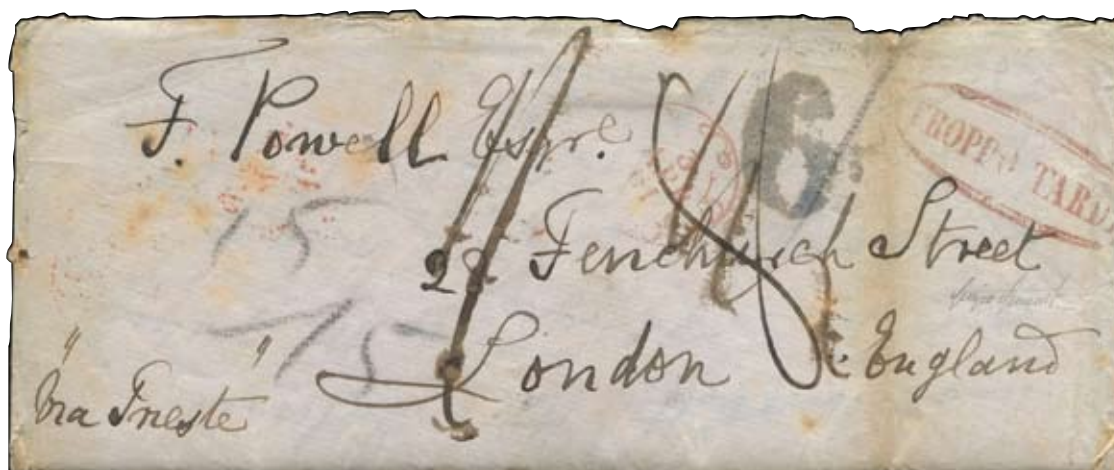 F. Powell Esqre.
6
TROPPO TARD
15
22 Fenchurch Street
London
England
15
"Via Trieste"